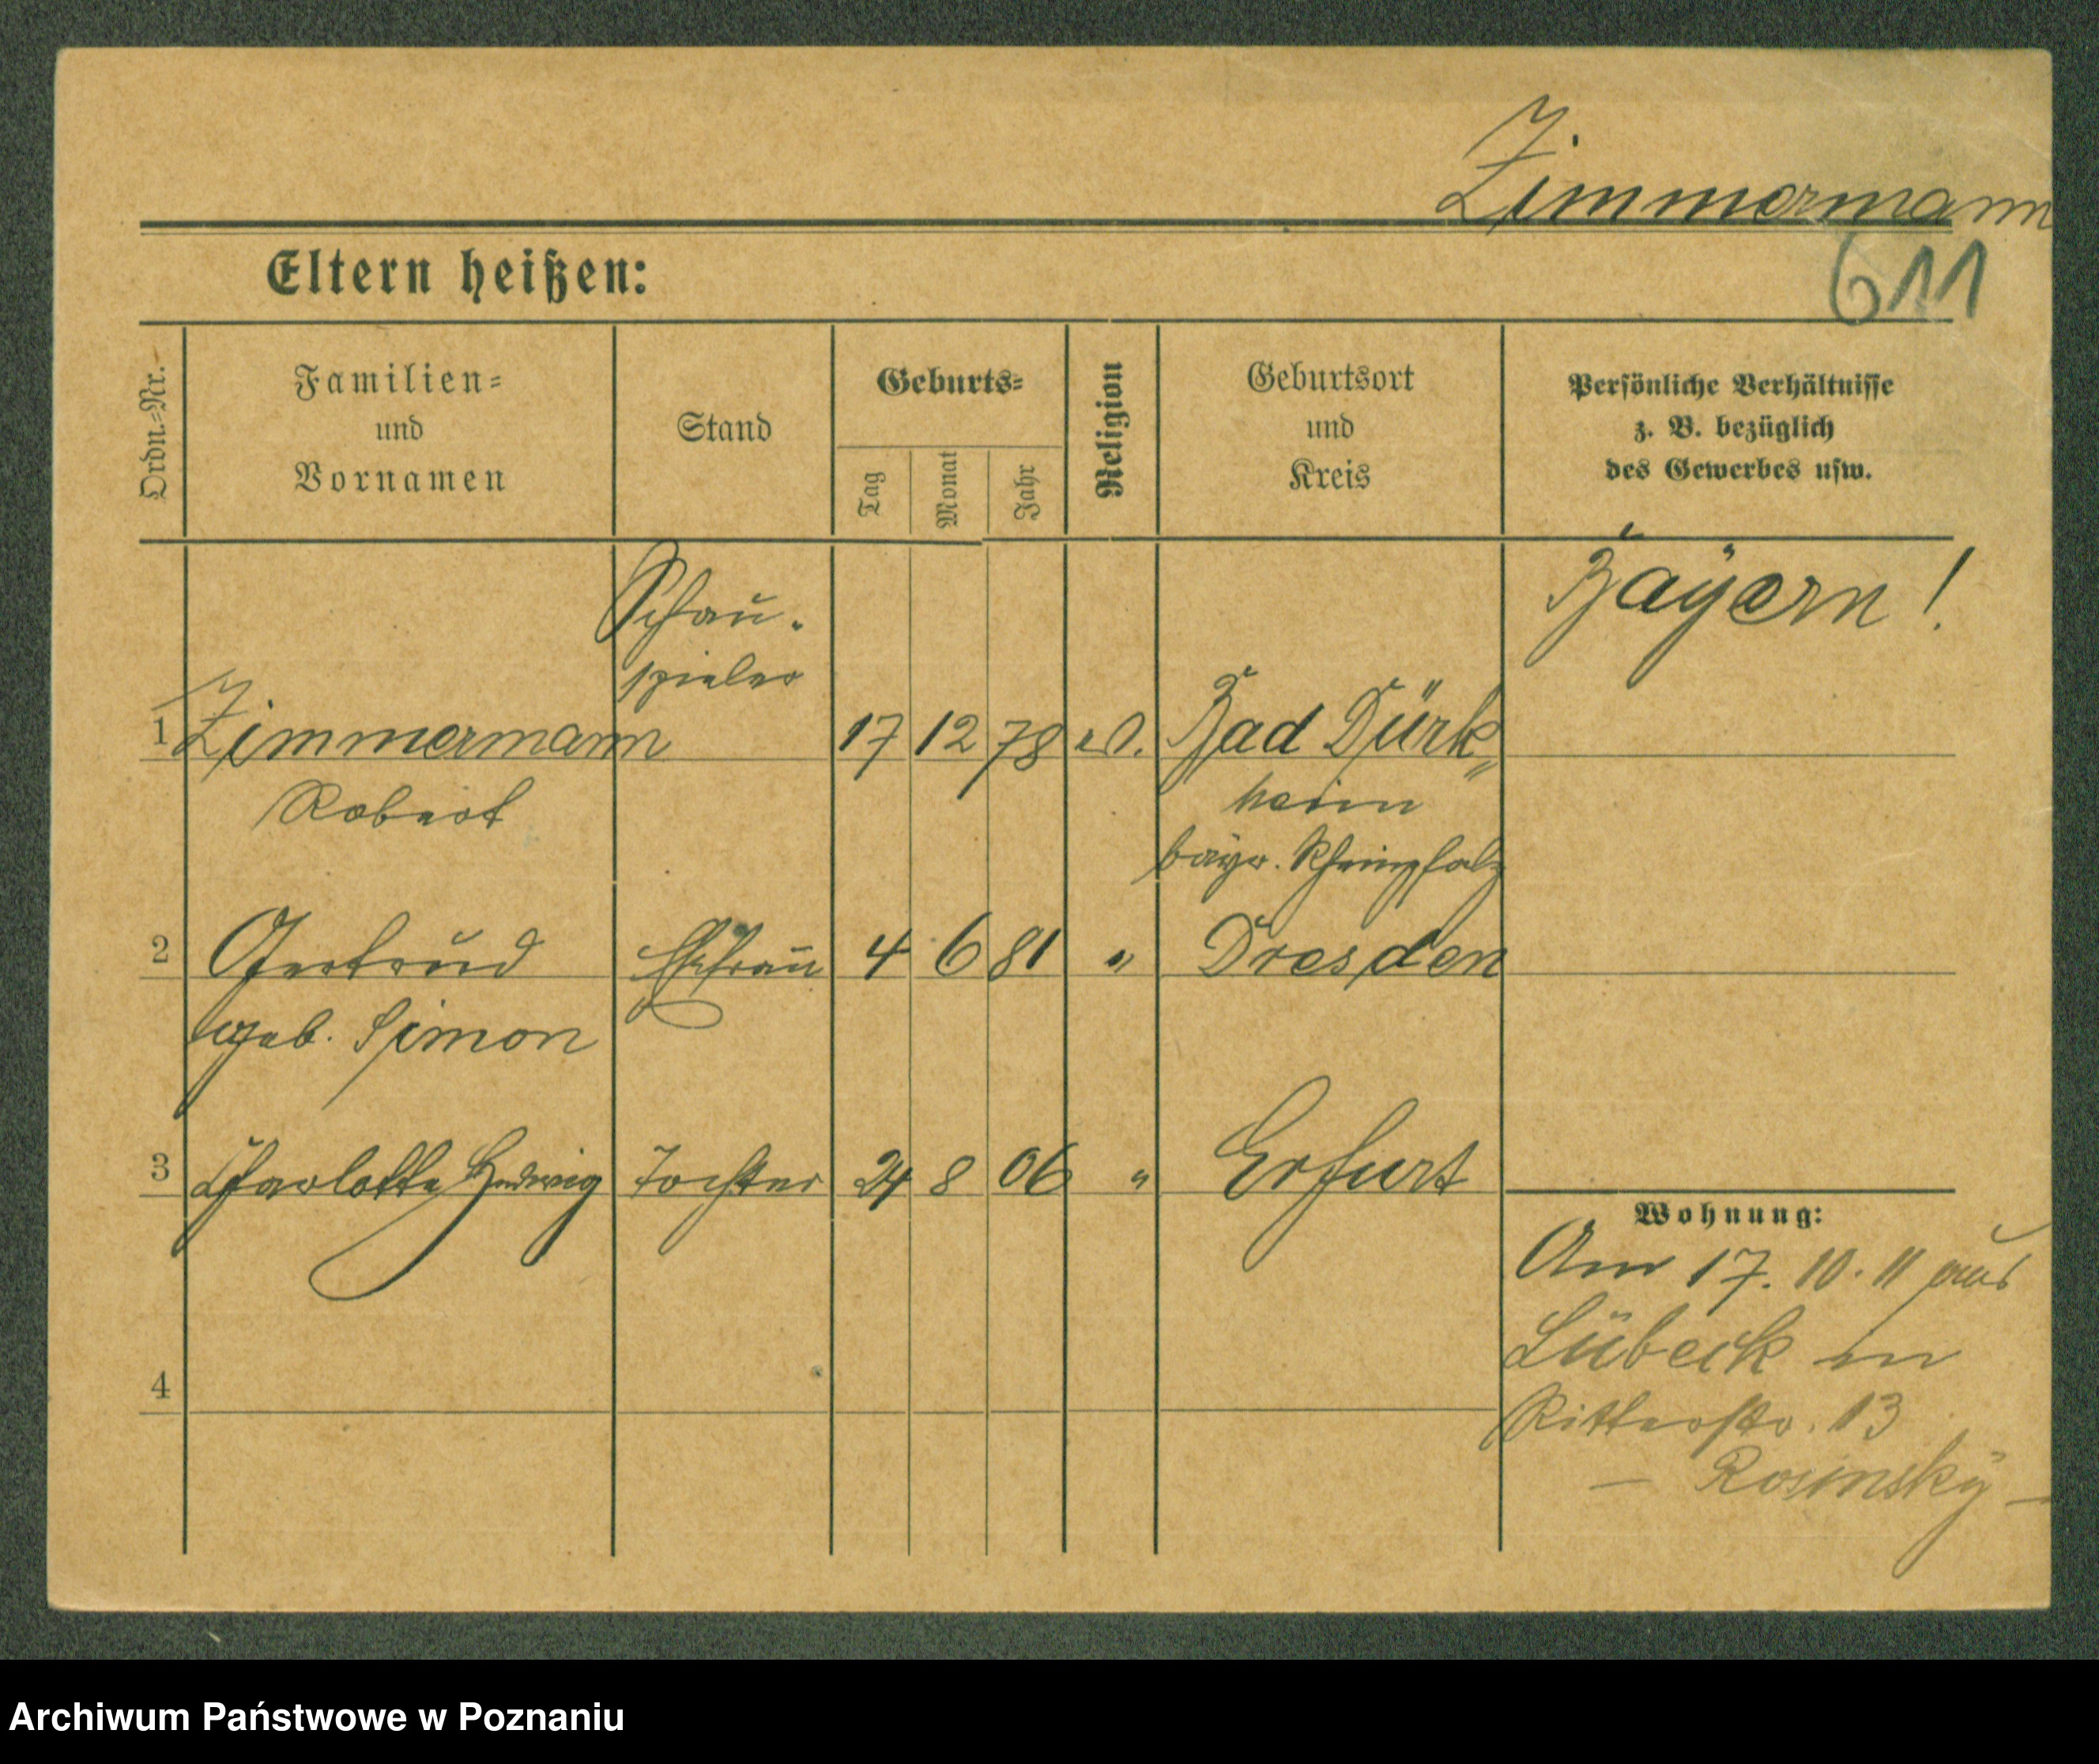 Zimmermann
611
Eltern heißen:
Ordn.-Nr.
Familien-
und
Vornamen
Stand
Geburts-
Tag
Monat
Jahr
Religion
Geburtsort
und
Kreis
Persönliche Verhältnisse
z. B. bezüglich
des Gewerbes usw.
Bayern!
Schau-
spieler
1 Zimmermann 17 12 78 ev. Bad Dürk„
Robert heim
bayr. Rheinpfalz
2 Gertrud Ehefrau 4 6 81 " Dresden
geb. Simon
3 Charlotte Hedwig Tochter 24 8 06 " Erfurt
Wohnung:
Am 17. 10. 11 aus
Lübeck in
4
Ritterstr. 13
— Rosinsky —
Archiwum Państwowe w Poznaniu